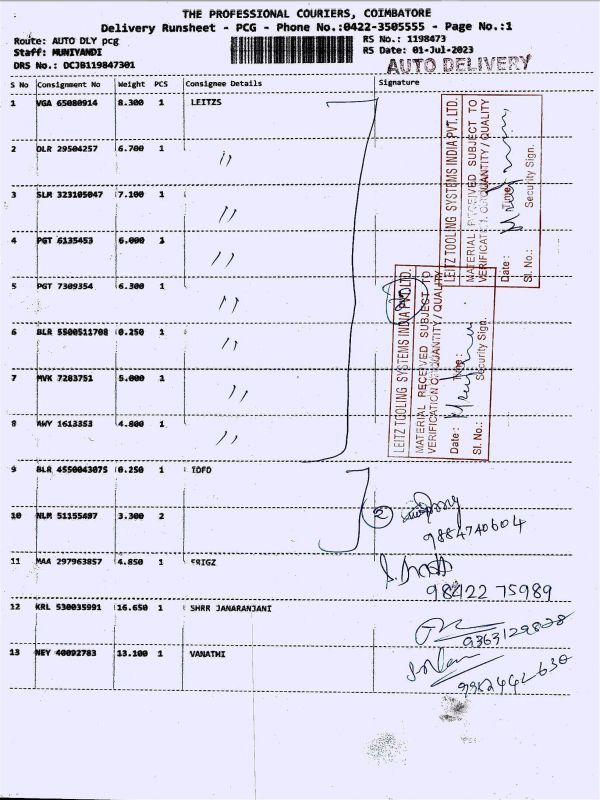 THE PROFESSIONAL COURIERS, COIMBATORE
Delivery Runsheet - PCG - Phone No.:0422-3505555 - Page No.:1
Route: AUTO DLY pcg
RS No.: 1198473
Staff: MUNIYANDI
RS Date: 01-Jul-2023
DRS No.: DCJB119847301
AUTO DELIVERY
S No Consignment No Weight PCS Consignee Details Signature
1 VGA 65080914 8.300 1 LEITZS
2 DLR 29504257 6.700 1 〃
3 SLM 323105047 7.100 1 〃
4 PGT 6135453 6.000 1 〃
5 PGT 7309354 6.300 1 〃
6 BLR 5500511708 0.250 1 〃
7 MVK 7283751 5.000 1 〃
8 AWY 1613353 4.800 1 〃
LEITZ TOOLING SYSTEMS INDIA PVT.LTD.
MATERIAL RECEIVED SUBJECT TO
VERIFICATION OF QUANTITY / QUALITY
Date : Time :
Sl. No.: Security Sign.
LEITZ TOOLING SYSTEMS INDIA PVT.LTD.
MATERIAL RECEIVED SUBJECT TO
VERIFICATION OF QUANTITY / QUALITY
Date : Time :
Sl. No.: Security Sign.
9 BLR 4550043075 0.250 1 TOFO
10 NLM 51155497 3.300 2
2
9884740604
11 MAA 297963857 4.850 1 ERIGZ
98422 75989
12 KRL 530035991 16.650 1 SHRR JANARANJANI
9363129828
13 NEY 40092783 13.100 1 VANATHI